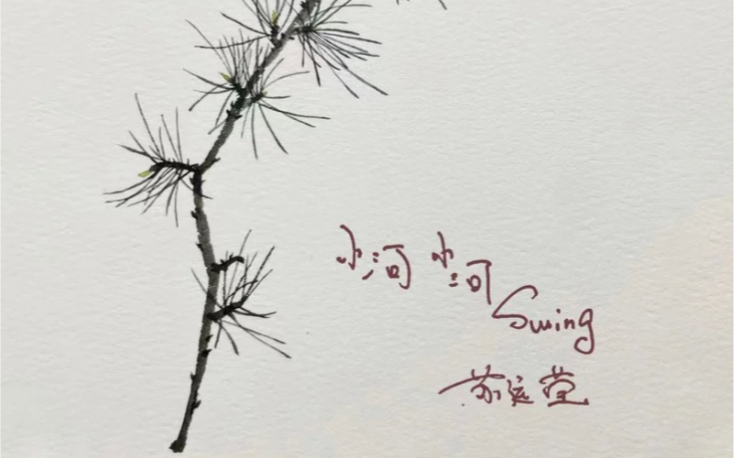 小河 小河
Swing
苏运莹